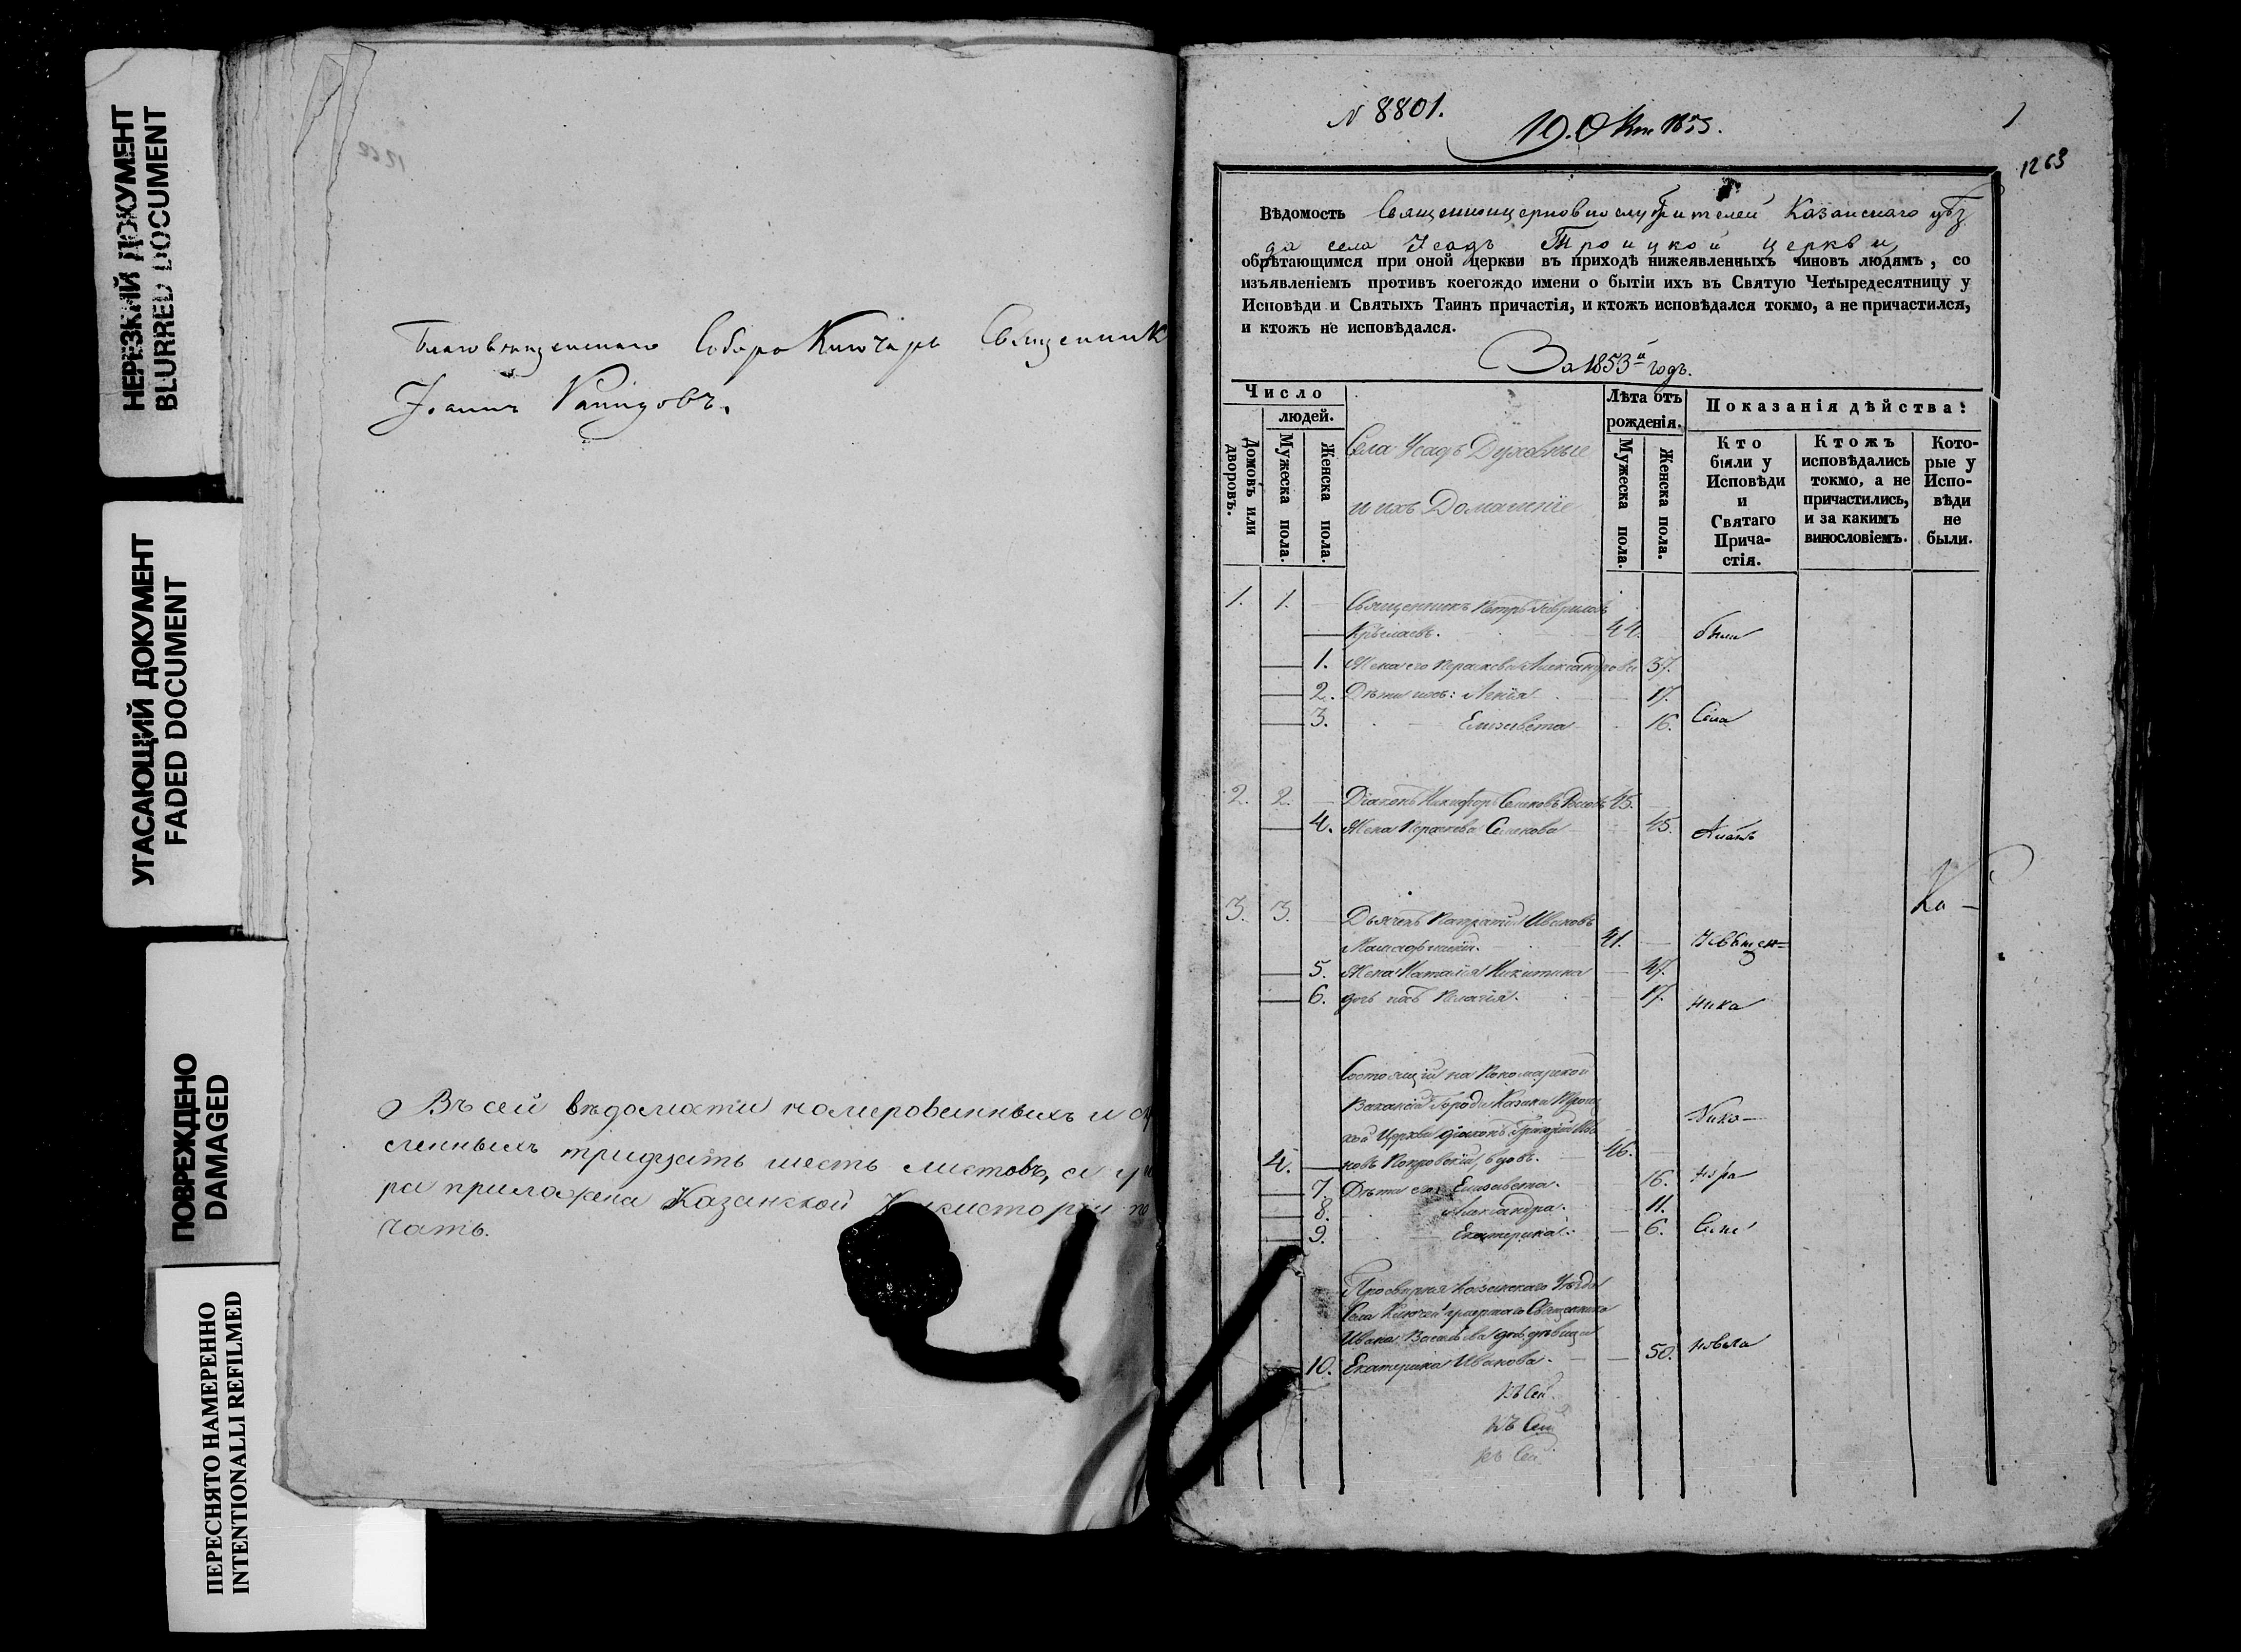 НЕРЕЗКИЙ ДОКУМЕНТ
BLURRED DOCUMENT
УГАСАЮЩИЙ ДОКУМЕНТ
FADED DOCUMENT
ПОВРЕЖДЕНО
DAMAGED
ПЕРЕСНЯТО НАМЕРЕННО
INTENTIONALLI REFILMED
1262
Благовѣщенскаго Собора Ключарь Священникъ
Іоаннъ
Въ сей вѣдомости номерованныхъ и
сленныхъ тридцать шесть листовъ, а у
ра приложена Казанской Консисторіи пе
чать.
N 8801.
19. Окт 1855.
1
1263
Вѣдомость Священноцерковнослужителей Казанскаго уѣз
да села Усадъ Троицкой церкви,
обрѣтающимся при оной церкви въ приходѣ нижеявленныхъ чиновъ людямъ, со
изъявленіемъ противъ коегождо имени о бытіи ихъ въ Святую Четыредесятницу у
Исповѣди и Святыхъ Таинъ причастія, и ктожъ исповѣдался токмо, а не причастился,
и ктожъ не исповѣдался.
За 1853й годъ.
Число
людей.
Домовъ или дворовъ.
Мужеска пола.
Женска пола.
Села Усадъ Духовные
и ихъ Домашніе
Лѣта отъ
рожденія.
Мужеска пола.
Женска пола.
Показанія дѣйства:
Кто
были у
Исповѣди
и
Святаго
Прича-
стія.
Ктожъ
исповѣдались
токмо, а не
причастились,
и за какимъ
винословіемъ.
Кото-
рые у
Испо-
вѣди
не
были.
1. 1. Священникъ Петръ Гавриловъ
44.
1. Жена его Параскева Александрова 37.
2. Дѣти ихъ: Агнія 17.
3. Елизавета 16. Села
2. 2. Діаконъ Никифоръ Семеновъ 45.
4. Жена Параскева Семенова 45.
3. 3. Дьячекъ Ивановъ
41. Священ=
5. Жена Наталія Никитина 47.
6. дочь ихъ Пелагія. 17. ника
Ка-
Состоящій на Пономарской
Вакансіи Города Казани Троиц
кой Церкви діаконъ Григорій Ива
4. новъ Покровскій, вдовъ. 46. Нико-
7. Дѣти его: Елизавета. 16.
8. Александра. 11.
9. Екатерина. 6.
Просвирня Казанскаго Уѣзда
Села Ключей умершаго Священника
Ивана Васильева дочь дѣвица
10. Екатерина Иванова. 50.
Къ Сей
Къ Сей
Къ Сей